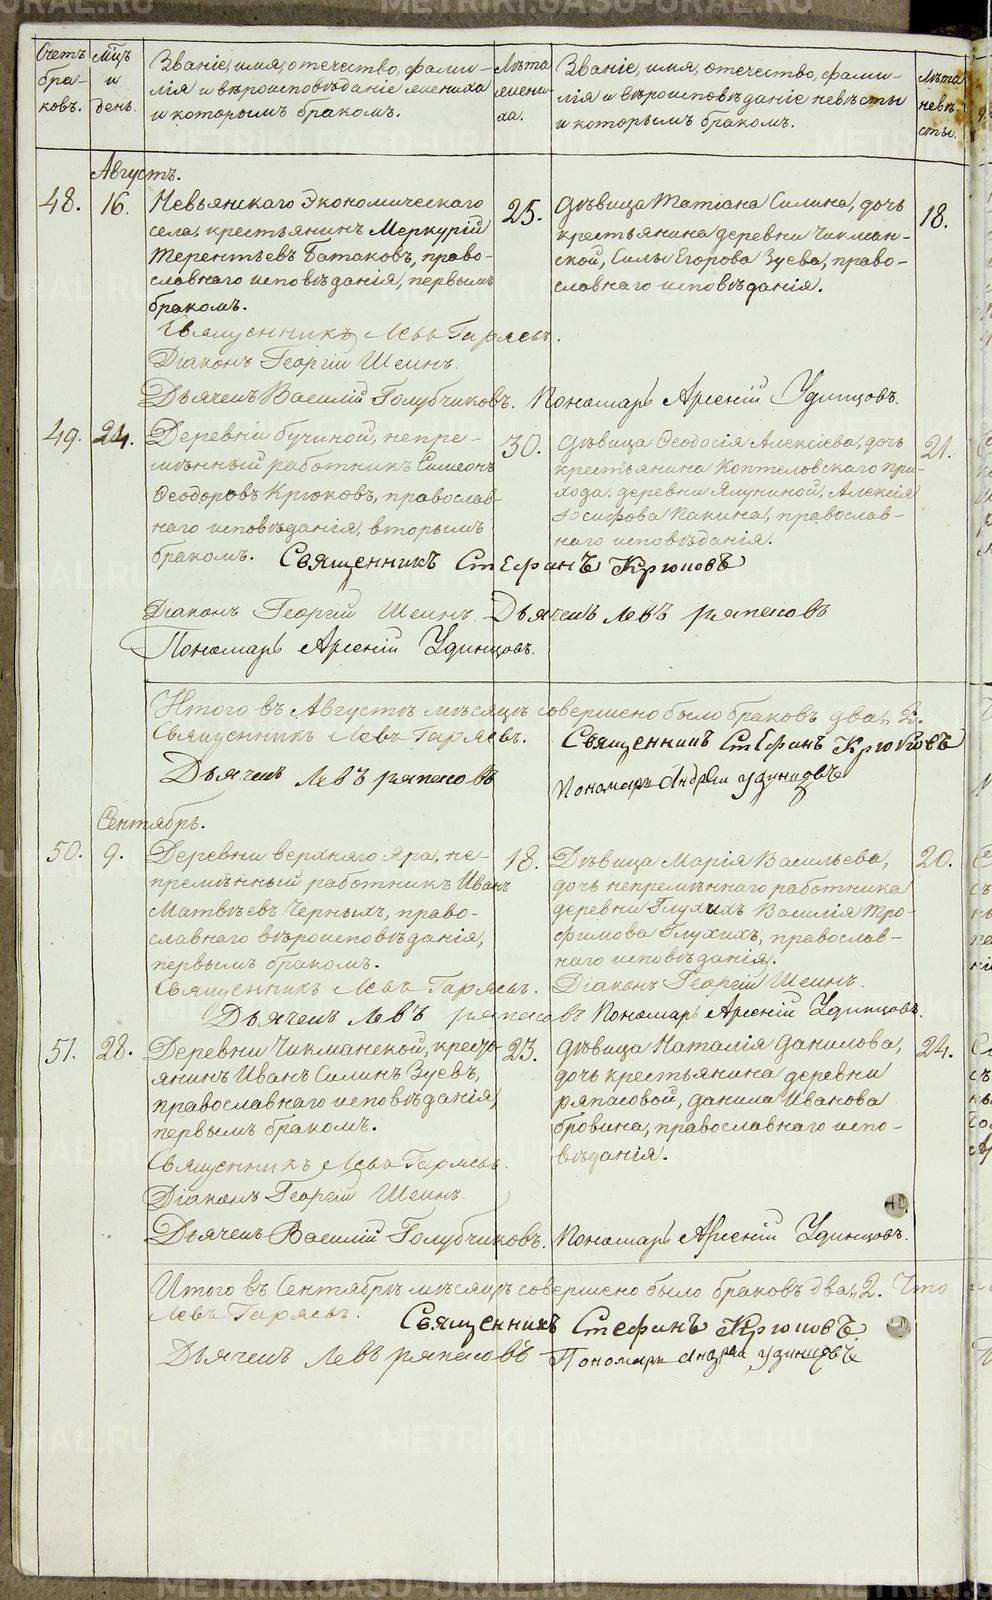 Счетъ бра- ковъ.
мцъ и день.
Званіе, имя, отечество, фами-
лія и вѣроисповѣданіе жениха
и которымъ бракомъ.
Лѣта жени- ха.
Званіе, имя, отечество, фами-
лія и вѣроисповѣданіе невѣсты
и которымъ бракомъ.
Лѣта невѣ- сты.
Августъ.
48. 16.
Невьянскаго Экономическаго
села, крестьянинъ Меркурій
Терентьевъ Батаковъ, право-
славнаго исповѣданія, первымъ
бракомъ.
25.
Дѣвица Татіана Силина, дочь
крестьянина деревни Чикман-
ской, Силы Егорова Зуева, право-
славнаго исповѣданія.
18.
Священникъ Левъ Гаряевъ.
Діаконъ Георгій Шеинъ.
Дьячекъ Василій Голубчиковъ. Пономарь Арсеній Удинцовъ.
49. 24.
Деревни бучиной, непре-
мѣнный работникъ Симеонъ
Феодоровъ Крюковъ, православ-
наго исповѣданія, вторымъ
бракомъ.
30.
Дѣвица Феодосія Алексіева, дочь
крестьянина Коптеловскаго при-
хода, деревни Ялуниной, Алексія
Іосифова Пакина, православ-
наго исповѣданія.
21.
Священникъ Стефанъ Крюковъ
Діаконъ Георгій Шеинъ. Дьячекъ Левъ ряпасовъ
Пономарь Арсеній Удинцовъ.
Итого въ Августѣ мѣсяцѣ совершено было браковъ два, 2.
Священникъ Левъ Гаряевъ. Священникъ Стефанъ Крюковъ
Дьячекъ Левъ ряпасовъ
Пономарь Андрей удинцовъ
Сентябрь.
50. 9.
Деревни верхняго яра, не-
премѣнный работникъ Иванъ
Матвѣевъ Черныхъ, право-
славнаго вѣроисповѣданія,
первымъ бракомъ.
18.
Дѣвица Марія Васильева,
дочь непремѣннаго работника
деревни Глухихъ Василія Тро-
фимова Глухихъ, православ-
наго исповѣданія.
20.
Священникъ Левъ Гаряевъ. Діаконъ Георгій Шеинъ.
Дьячекъ Левъ ряпасовъ Пономарь Арсеній Удинцовъ.
51. 28.
Деревни Чикманской, кресть-
янинъ Иванъ Силинъ Зуевъ,
православнаго исповѣданія,
первымъ бракомъ.
23.
Дѣвица Наталія Данилова,
дочь крестьянина деревни
ряпасовой, Данила Иванова
бровина, православнаго испо-
вѣданія.
24.
Священникъ Левъ Гаряевъ.
Діаконъ Георгій Шеинъ.
Дьячекъ Василій Голубчиковъ. Пономарь Арсеній Удинцовъ.
Итого въ Сентябрѣ мѣсяцѣ совершено было браковъ два, 2. Что
Левъ Гаряевъ. Священникъ Стефанъ Крюковъ.
Дьячекъ Левъ ряпасовъ Пономарь Андрей удинцовъ
METRIKI.GASO-URAL.RU